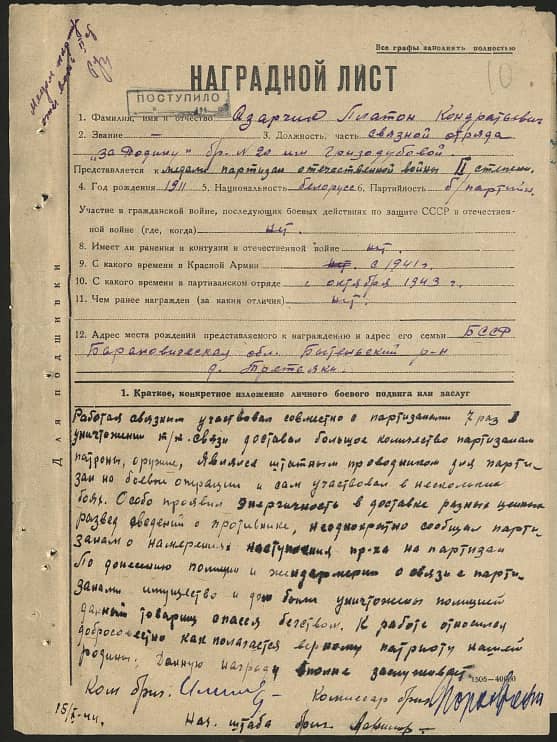 Все графы заполнять полностью
10
НАГРАДНОЙ ЛИСТ
ПОСТУПИЛО
1. Фамилия, имя и отчество Азарчик Платон Кондратьевич
2. Звание – 3. Должность, часть связной отряда
"за Родину" бр. №20 им Гризодубовой.
Представляется к медали партизан отечественной войны II степени.
4. Год рождения 1911 5. Национальность белорусс 6. Партийность б/партийн.
Участие в гражданской войне, последующих боевых действиях по защите СССР и отечествен-
ной войне (где, когда) нет.
8. Имеет ли ранения и контузии в отечественной войне нет.
9. С какого времени в Красной Армии нет. с 1941 г.
10. С какого времени в партизанском отряде с октября 1943 г.
11. Чем ранее награжден (за какия отличия) нет.
12. Адрес места рождения представляемого к награждению и адрес его семьи БССР
Барановическая обл. Бытеньский р-н
д. Третьяки.
Для подшивки
1. Краткое, конкретное изложение личного боевого подвига или заслуг
Работая связным участвовал совместно с партизанами 7 раз в
уничтожении т/т-связи доставал большое количество партизанам
патроны, оружие, являлся штатным проводником для парти-
зан на боевые операции и сам участвовал в нескольких
боях. Особо проявил энергичность в доставке разных ценных
развед сведений о противнике, неоднократно сообщал парти-
занам о намерениях наступления пр-ка на партизан
По донесению полиции и жандармерию о связи с парти-
занами имущество и дом были уничтожены полицией
данный товарищ спасся бегством. К работе относился
добросовестно как полагается верному патриоту нашей
родины. Данную награду вполне заслуживает
1505—40000
Ком бриг. Комиссар бриг.
15/X-44. Нач. штаба бриг.